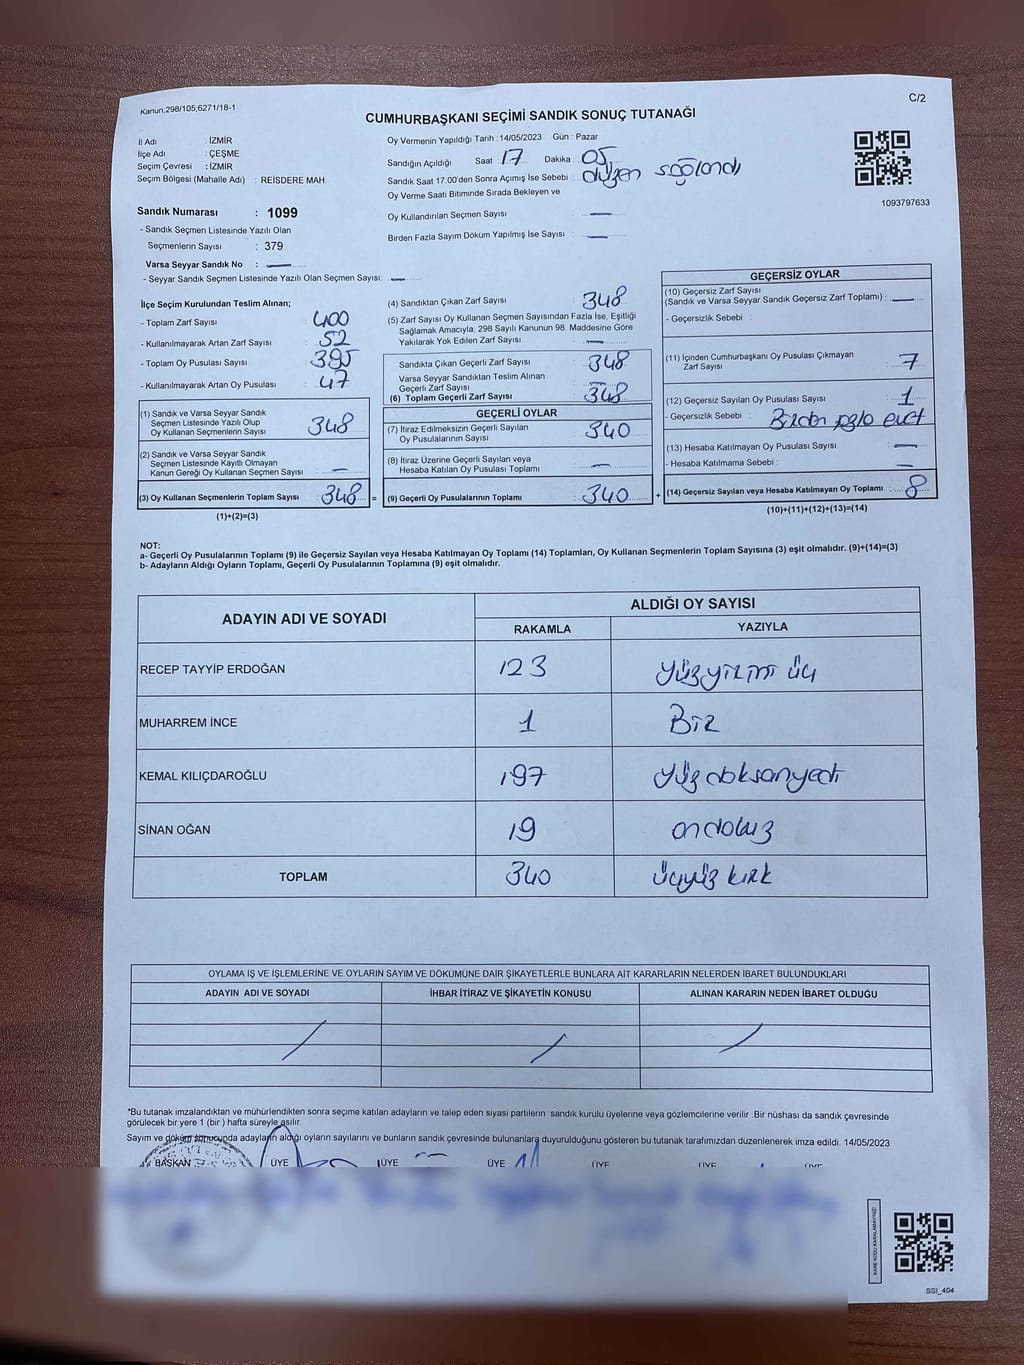 Kanun:298/105;6271/18-1
C/2
CUMHURBAŞKANI SEÇİMİ SANDIK SONUÇ TUTANAĞI
İl Adı : İZMİR
İlçe Adı : ÇEŞME
Seçim Çevresi : İZMİR
Seçim Bölgesi (Mahalle Adı) : REISDERE MAH.
Oy Vermenin Yapıldığı Tarih : 14/05/2023 Gün : Pazar
Sandığın Açıldığı Saat 17 Dakika : 05
Sandık Saat 17.00'den Sonra Açımış İse Sebebi : düzen sağlandı
Oy Verme Saati Bitiminde Sırada Bekleyen ve
Oy Kullandırılan Seçmen Sayısı : —
Birden Fazla Sayım Döküm Yapılmış İse Sayısı : —
1093797633
Sandık Numarası : 1099
- Sandık Seçmen Listesinde Yazılı Olan
Seçmenlerin Sayısı : 379
Varsa Seyyar Sandık No : —
- Seyyar Sandık Seçmen Listesinde Yazılı Olan Seçmen Sayısı: —
İlçe Seçim Kurulundan Teslim Alınan;
- Toplam Zarf Sayısı : 400
- Kullanılmayarak Artan Zarf Sayısı : 52
- Toplam Oy Pusulası Sayısı : 395
- Kullanılmayarak Artan Oy Pusulası : 47
(1) Sandık ve Varsa Seyyar Sandık
Seçmen Listesinde Yazılı Olup
Oy Kullanan Seçmenlerin Sayısı : 348
(2) Sandık ve Varsa Seyyar Sandık
Seçmen Listesinde Kayıtlı Olmayan
Kanun Gereği Oy Kullanan Seçmen Sayısı : —
(3) Oy Kullanan Seçmenlerin Toplam Sayısı : 348 =
(1)+(2)=(3)
(4) Sandıktan Çıkan Zarf Sayısı : 348
(5) Zarf Sayısı Oy Kullanan Seçmen Sayısından Fazla İse, Eşitliği
Sağlamak Amacıyla, 298 Sayılı Kanunun 98. Maddesine Göre
Yakılarak Yok Edilen Zarf Sayısı : —
Sandıkta Çıkan Geçerli Zarf Sayısı : 348
Varsa Seyyar Sandıktan Teslim Alınan
Geçerli Zarf Sayısı : —
(6) Toplam Geçerli Zarf Sayısı : 348
GEÇERLİ OYLAR
(7) İtiraz Edilmeksizin Geçerli Sayılan
Oy Pusulalarının Sayısı : 340
(8) İtiraz Üzerine Geçerli Sayılan veya
Hesaba Katılan Oy Pusulası Toplamı : —
(9) Geçerli Oy Pusulalarının Toplamı : 340 +
GEÇERSİZ OYLAR
(10) Geçersiz Zarf Sayısı
(Sandık ve Varsa Seyyar Sandık Geçersiz Zarf Toplamı) : —
- Geçersizlik Sebebi :
(11) İçinden Cumhurbaşkanı Oy Pusulası Çıkmayan
Zarf Sayısı : 7
(12) Geçersiz Sayılan Oy Pusulası Sayısı : 1
- Geçersizlik Sebebi : Birden fazla evet
(13) Hesaba Katılmayan Oy Pusulası Sayısı : —
- Hesaba Katılmama Sebebi : —
(14) Geçersiz Sayılan veya Hesaba Katılmayan Oy Toplamı : 8
(10)+(11)+(12)+(13)=(14)
NOT:
a- Geçerli Oy Pusulalarının Toplamı (9) ile Geçersiz Sayılan veya Hesaba Katılmayan Oy Toplamı (14) Toplamları, Oy Kullanan Seçmenlerin Toplam Sayısına (3) eşit olmalıdır. (9)+(14)=(3)
b- Adayların Aldığı Oyların Toplamı, Geçerli Oy Pusulalarının Toplamına (9) eşit olmalıdır.
ADAYIN ADI VE SOYADI ALDIĞI OY SAYISI
RAKAMLA YAZIYLA
RECEP TAYYİP ERDOĞAN 123 yüzyirmi üç
MUHARREM İNCE 1 BİR
KEMAL KILIÇDAROĞLU 197 yüzdoksanyedi
SİNAN OĞAN 19 ondokuz
TOPLAM 340 üçyüz kırk
OYLAMA İŞ VE İŞLEMLERİNE VE OYLARIN SAYIM VE DÖKÜMÜNE DAİR ŞİKAYETLERLE BUNLARA AİT KARARLARIN NELERDEN İBARET BULUNDUKLARI
ADAYIN ADI VE SOYADI İHBAR İTİRAZ VE ŞİKAYETİN KONUSU ALINAN KARARIN NEDEN İBARET OLDUĞU
*Bu tutanak imzalandıktan ve mühürlendikten sonra seçime katılan adayların ve talep eden siyasi partilerin sandık kurulu üyelerine veya gözlemcilerine verilir .Bir nüshası da sandık çevresinde
görülecek bir yere 1 (bir ) hafta süreyle asılır.
Sayım ve döküm sonucunda adayların aldığı oyların sayılarını ve bunların sandık çevresinde bulunanlara duyurulduğunu gösteren bu tutanak tarafımızdan düzenlenerek imza edildi. 14/05/2023
BAŞKAN ÜYE ÜYE ÜYE ÜYE ÜYE ÜYE
KARE KODU KARALAMAYINIZ!
SSI_404